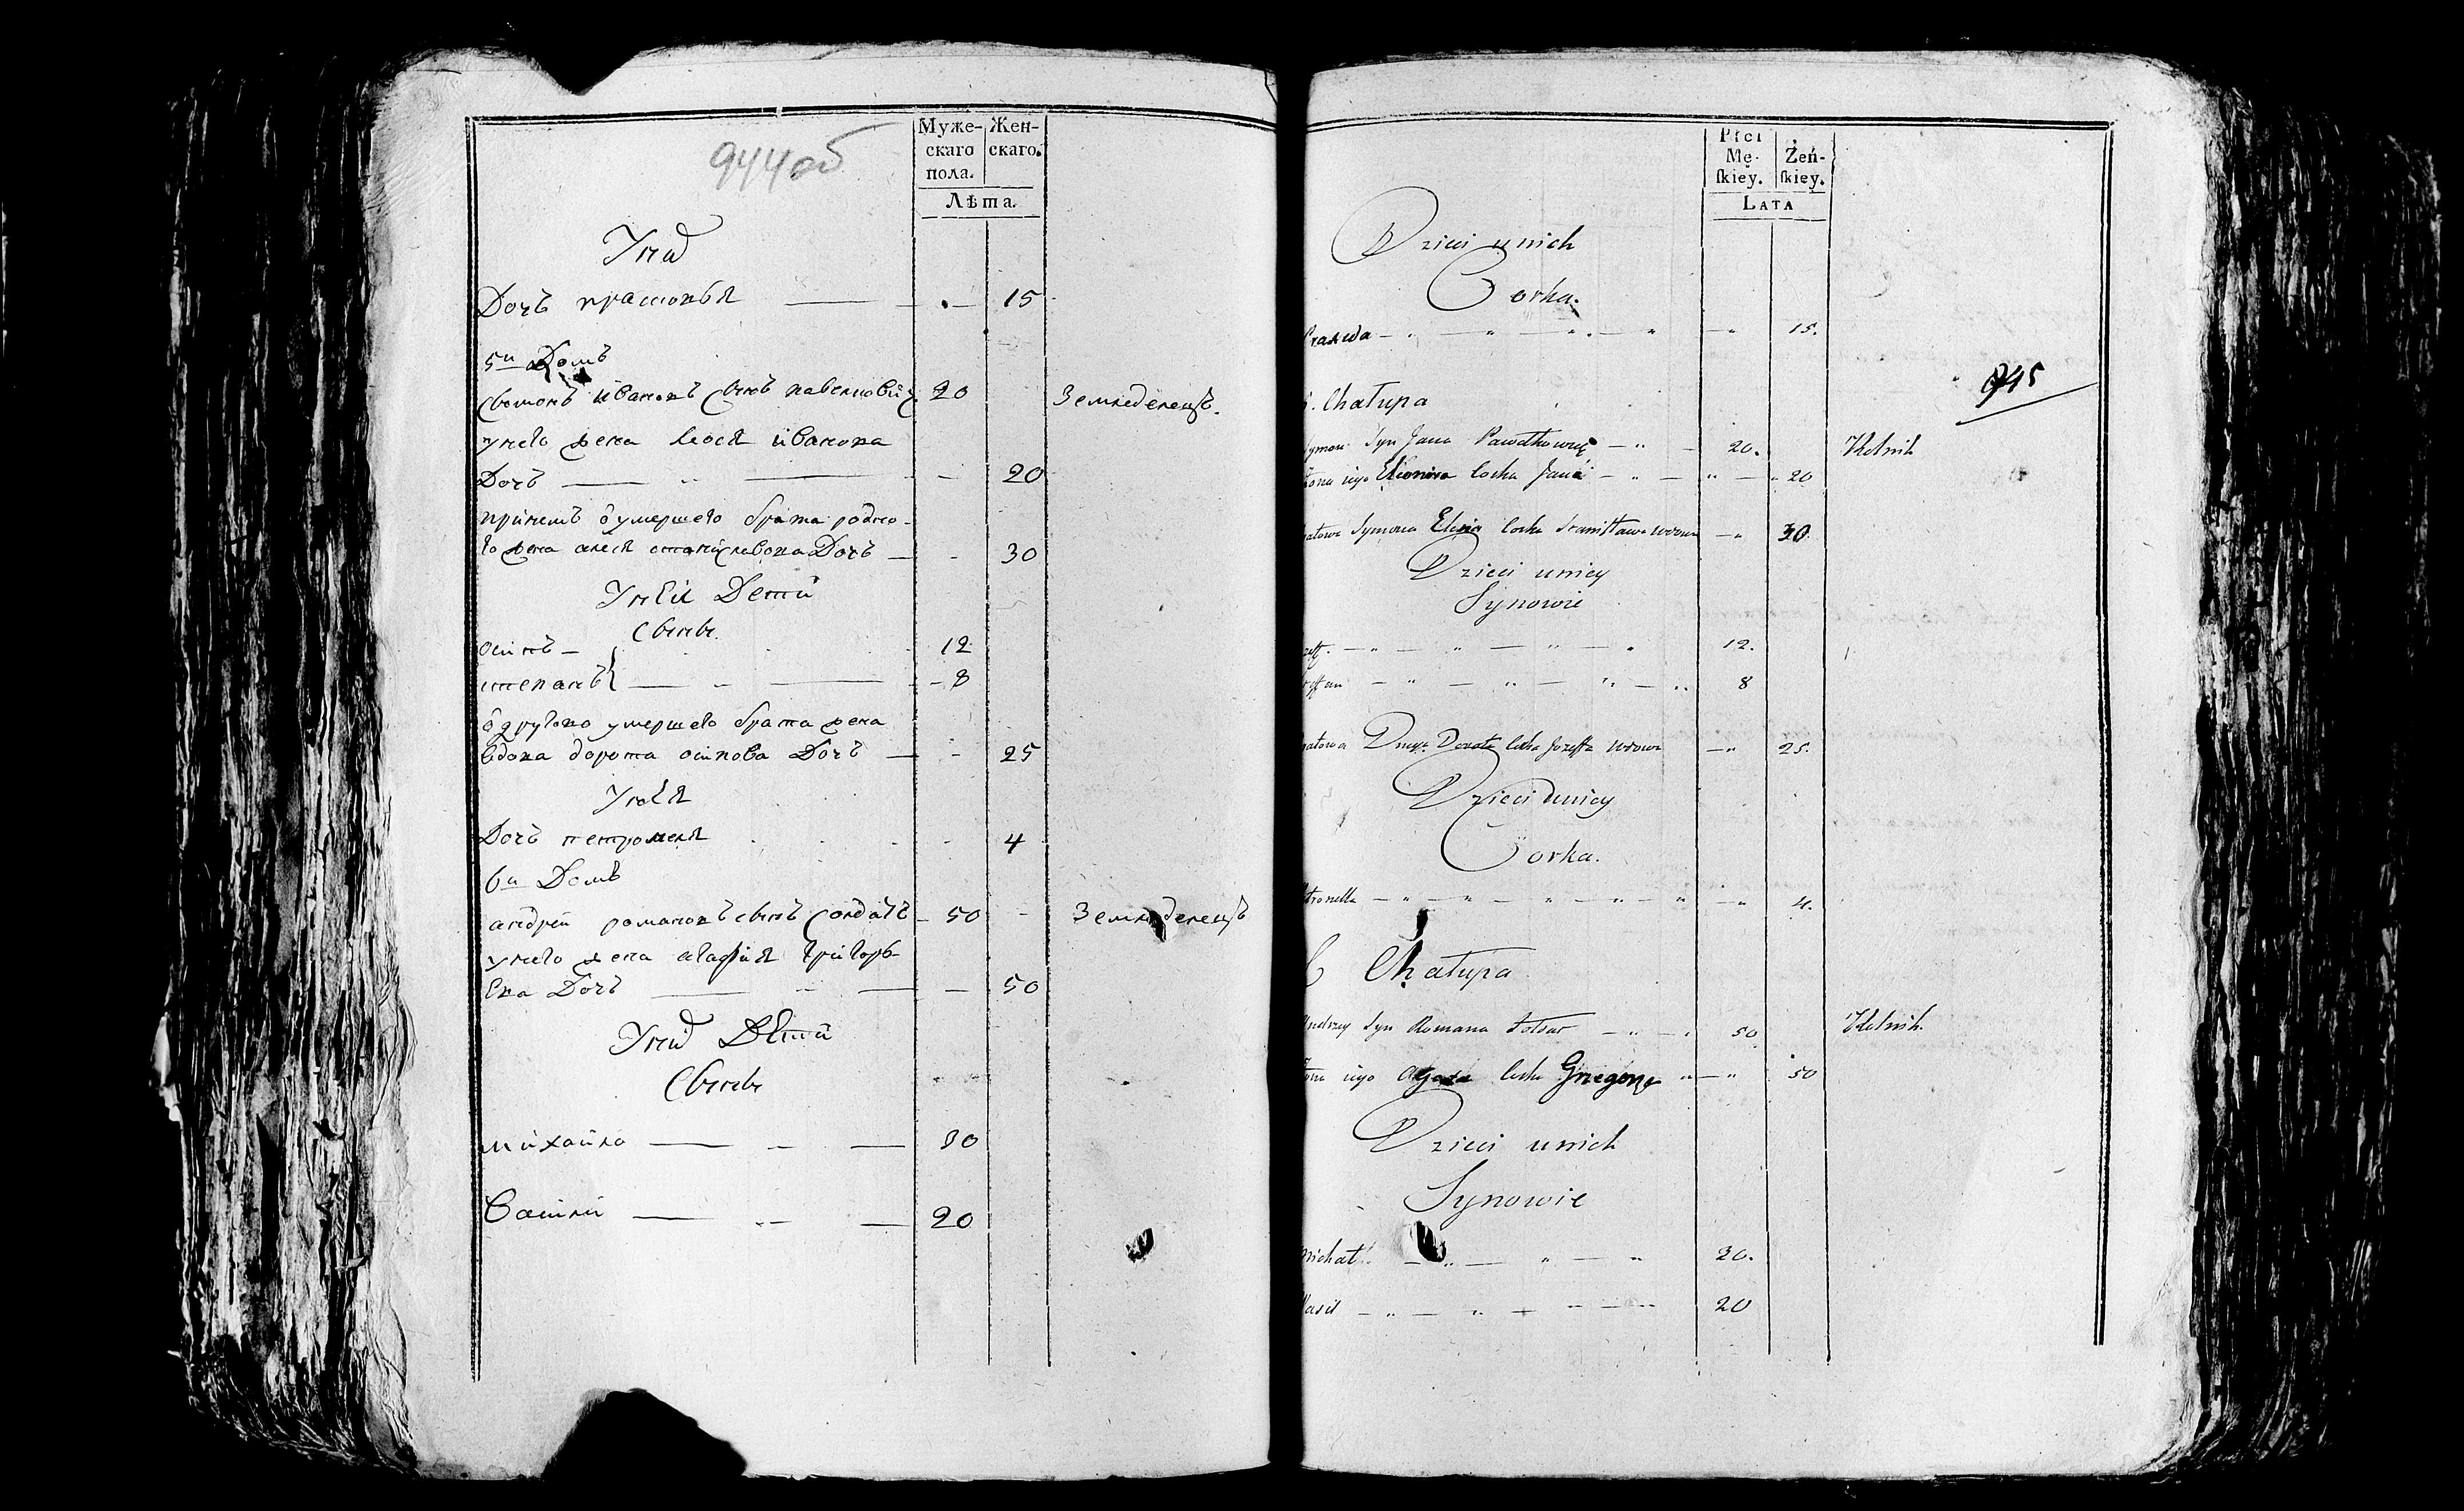 944об
Муже- Жен-
скаго скаго.
пола.
Лѣта.
У нихъ
Дочь прасковья — 15
5й Домъ
Сымонъ Ивановъ сынъ павелковичъ 20 Земледелецъ.
у него жена иванова
Дочь — 20
при немъ умершего брата родно-
го жена алеся станиславова Дочь — 30
У неи Дети
Сыны
осипъ — 12
степанъ — 8
другого умершего брата жена
вдова дорота осипова Дочь — 25
У нея
Дочь петронеля 4
6й Домъ
андрей романовъ сынъ солдатъ — 50 Земледелецъ
у него жена агафия григорь-
ева Дочь — 50
У нихъ Дети
Сыны
михайло — 30
Василий — 20
Płci
Mę- Żeń-
ſkiey. ſkiey.
LATA
945
Dzieci u nich
Corka.
15.
Chałupa
Syn Jana Pawełkowicz 20. Rolnik
żona iego Corka Jana 20
Symona Corka Stanisława wdowa 30
Dzieci u niey
Synowie
12.
8
Dorota Corka Jozeffa wdowa 25.
Dzieci u niey
Corka.
tronella 4.
6 Chałupa
Andrzey Syn Romana Sołdat 50 Rolnik.
żona iego Agata Corka Grzegorza 50
Dzieci u nich
Synowie
michał 30.
Wasil 20